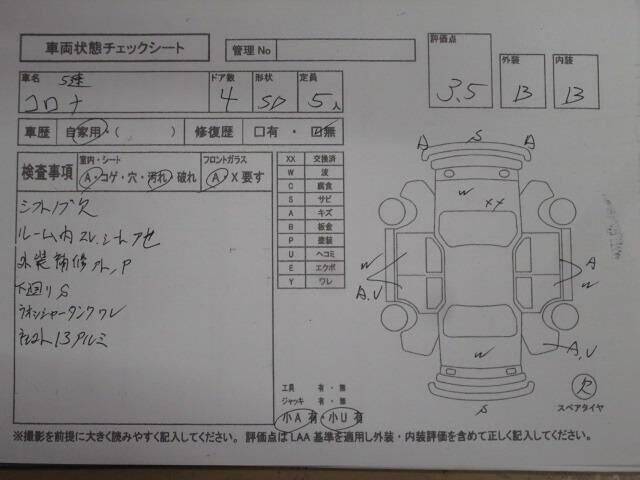 車両状態チェックシート 管理No
評価点 3.5 外装 B 内装 B
車名 5速 コロナ ドア数 4 形状 SD 定員 5人
車歴 自家用・( ) 修復歴 □有・☑無
検査事項 室内・シート A・コゲ・穴・汚れ・破れ フロントガラス A X要す
シフトノブ欠
ルーム内
下回りS
ネスト13アルミ
XX 交換済
W 波
C 腐食
S サビ
A キズ
B 板金
P 塗装
U ヘコミ
E エクボ
Y ワレ
A S A
W XX
W A
A,U W
W A,U
S
欠
スペアタイヤ
工具 有・無
ジャッキ 有・無
小A有・小U有
※撮影を前提に大きく読みやすく記入してください。評価点はLAA基準を適用し外装・内装評価を含めて正しく記入してください。